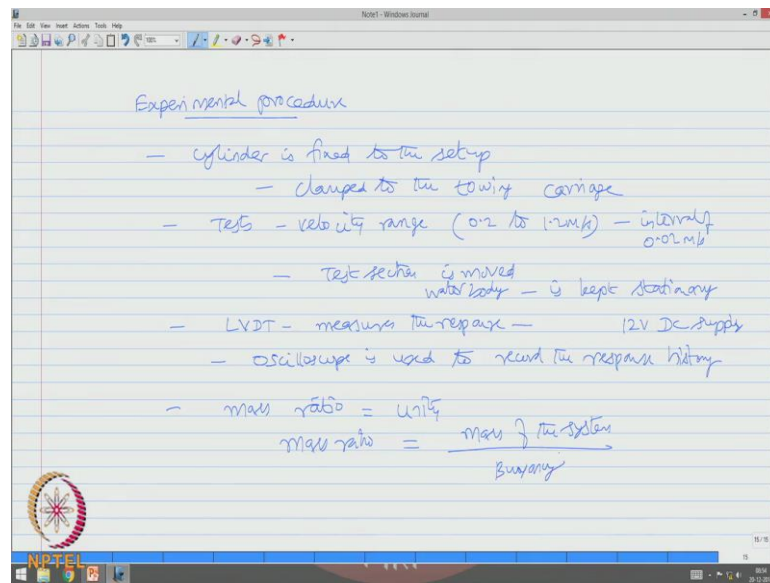 Note1 - Windows Journal
File Edit View Insert Actions Tools Help
Experimental procedure
- cylinder is fixed to the setup
- clamped to the towing carriage
- Tests - velocity range (0.2 to 1.2 m/s) - interval of
0.02 m/s
- Test section is moved
water body - is kept stationary
- LVDT - measures the response - 12V DC supply
- oscilloscope is used to record the response history
- mass ratio = unity
mass ratio = mass of the system
Buoyancy
15/15
15
NPTEL